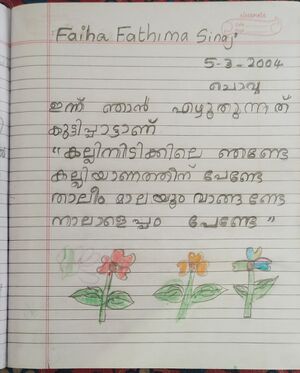 classmate
Faiha Fathima Siraj
5-3-2004
ചൊവ്വ
ഇന്ന് ഞാൻ എഴുതുന്നത്
കുട്ടിപ്പാട്ടാണ്
"കല്ലിന്നിടിക്കിലെ ഞണ്ടേ
കല്ല്യാണത്തിന് പേണ്ടേ
താലീം മാലയും വാങ്ങണ്ടേ
നാലാളെപ്പം പേണ്ടേ"